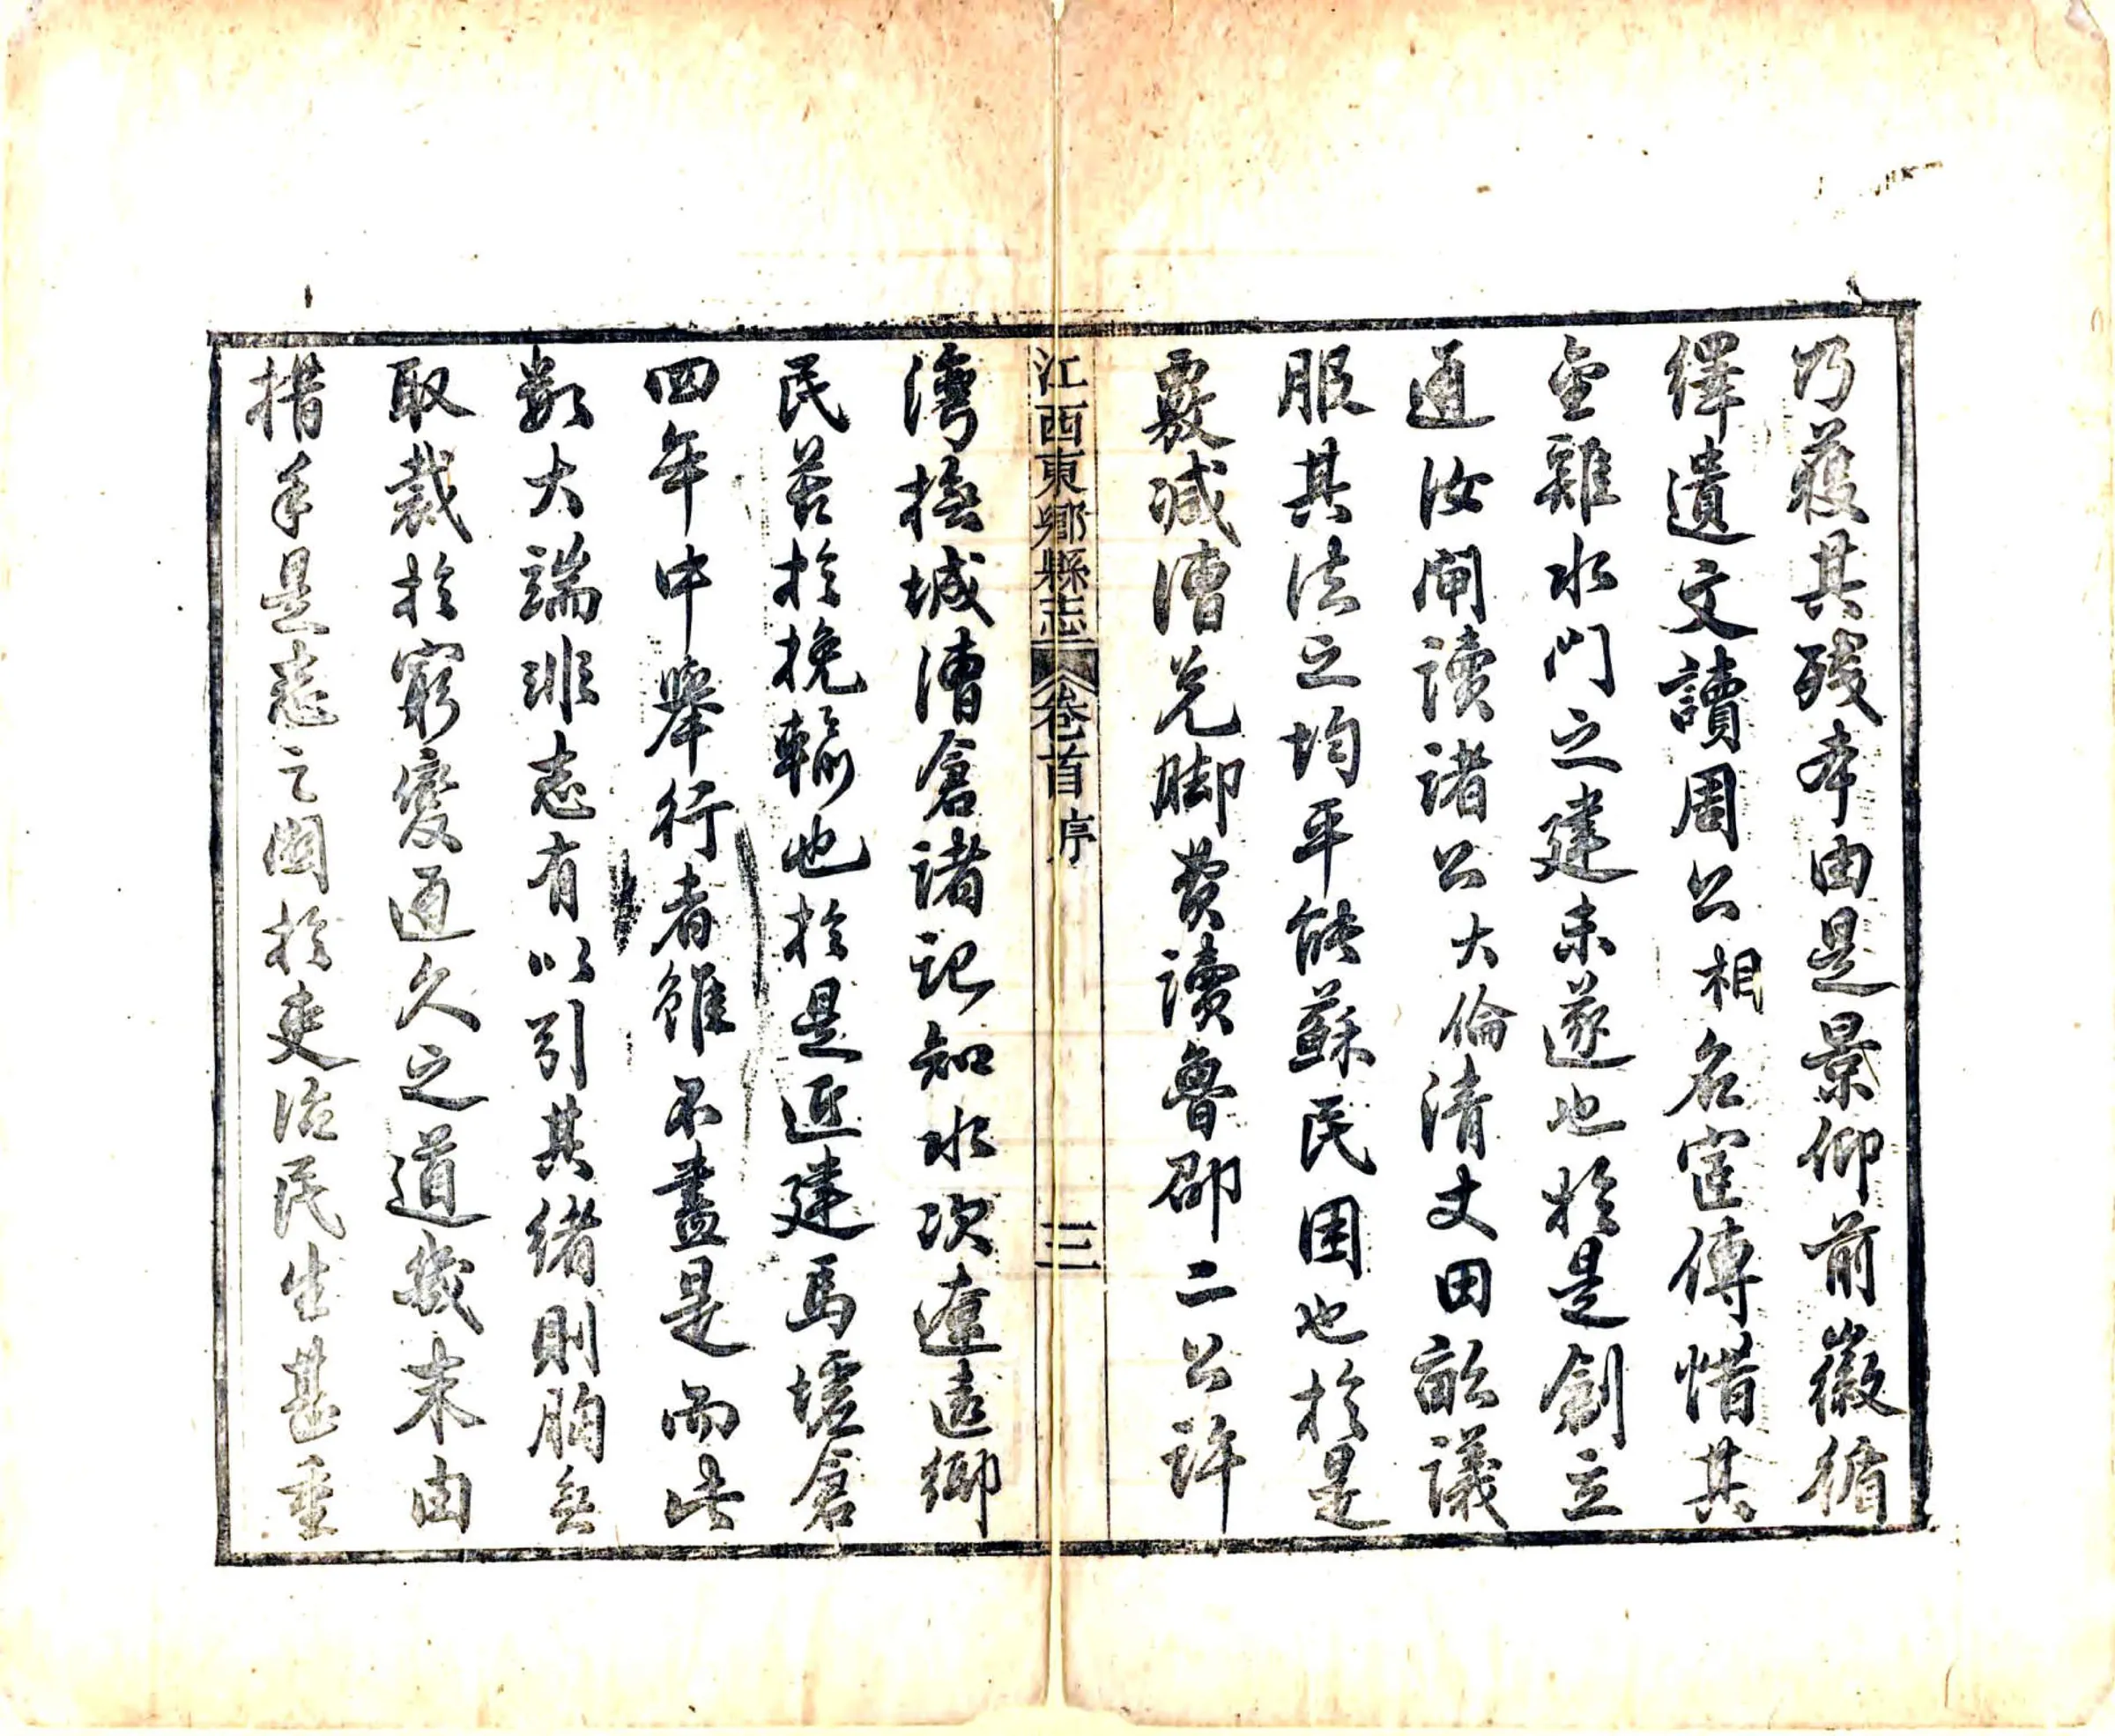 乃獲其殘本由是景仰前徽循
繹遺文讀周公相名宦傳惜其
金雞水門之建未遂也於是創立
通汝閘讀諸公大倫清丈田畝議
服其法之均平能蘇民困也於是
覈減漕兌脚費讀魯邵二公許
江西東鄉縣志 卷首 序 三
灣撫城漕倉諸記知水次遼遠鄉
民苦於挽輸也於是近建馬墟倉
四年中舉行者雖不盡是而此
數大端非志有以引其緒則胸無
取裁於窮變通久之道幾末由
措手是志之關於吏治民生甚重